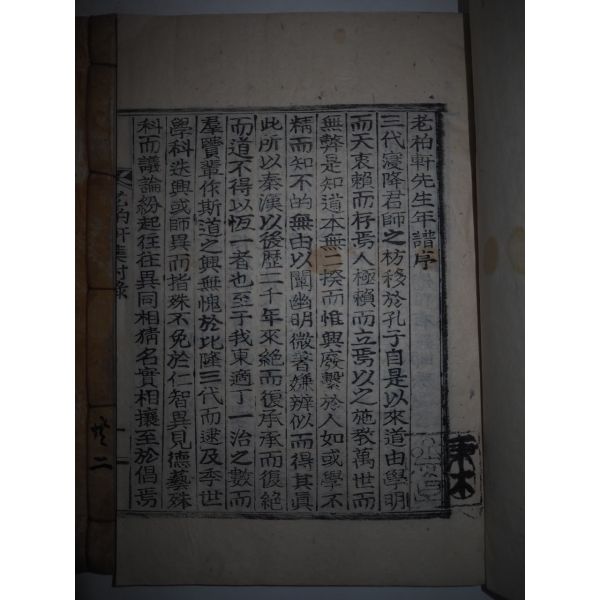 老柏軒先生年譜序
三代寖降君師之枋移於孔子自是以來道由學明
而天衷賴而存焉人極賴而立焉以之施教萬世而
無弊是知道本無二揆而惟興廢繫於人如或學不
精而知不的無由以闡幽明微著嫌辨似而得其眞
此所以秦漢以後歷二千年來絶而復承承而復絶
而道不得以恆一者也至于我東適丁一治之數而
羣賢輩作斯道之興無愧於比隆三代而逮及季世
學科迭興或師異而皆殊不免於仁智異見德藝殊
科而議論紛起往往異同相猜名實相攘至於倡焉
老柏軒集附錄
二